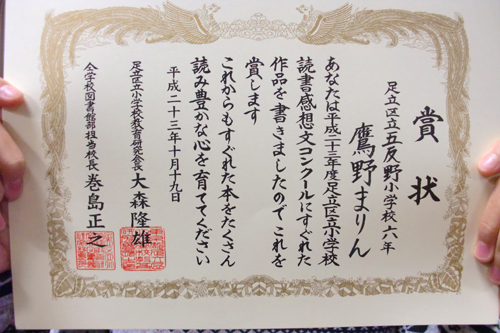 賞状
足立区立五反野小学校 六年
鷹野まりん
あなたは平成二十三年度足立区立小学校
読書感想文コンクールにすぐれた
作品を書きましたのでこれを
賞します
これからもすぐれた本をたくさん
読み豊かな心を育ててください
平成二十三年十月十九日
足立区立小学校教育研究会長 大森隆雄
仝学校図書館部担当校長 巻島正之